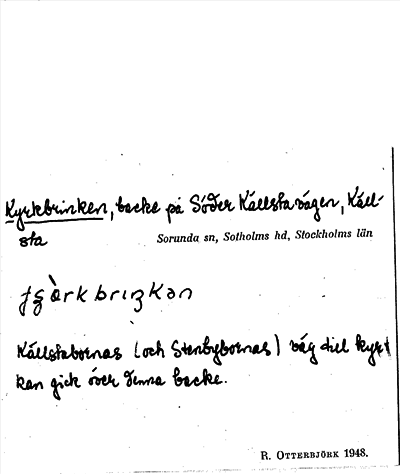 Kyrkbrinken, backe på Söder Källstavägen, Käll-
sta
Sorunda sn, Sotholms hd, Stockholms län
Källstabornas (och Stenbybornas) väg till kyr
kan gick över denna backe.
R. OTTERBJÖRK 1948.